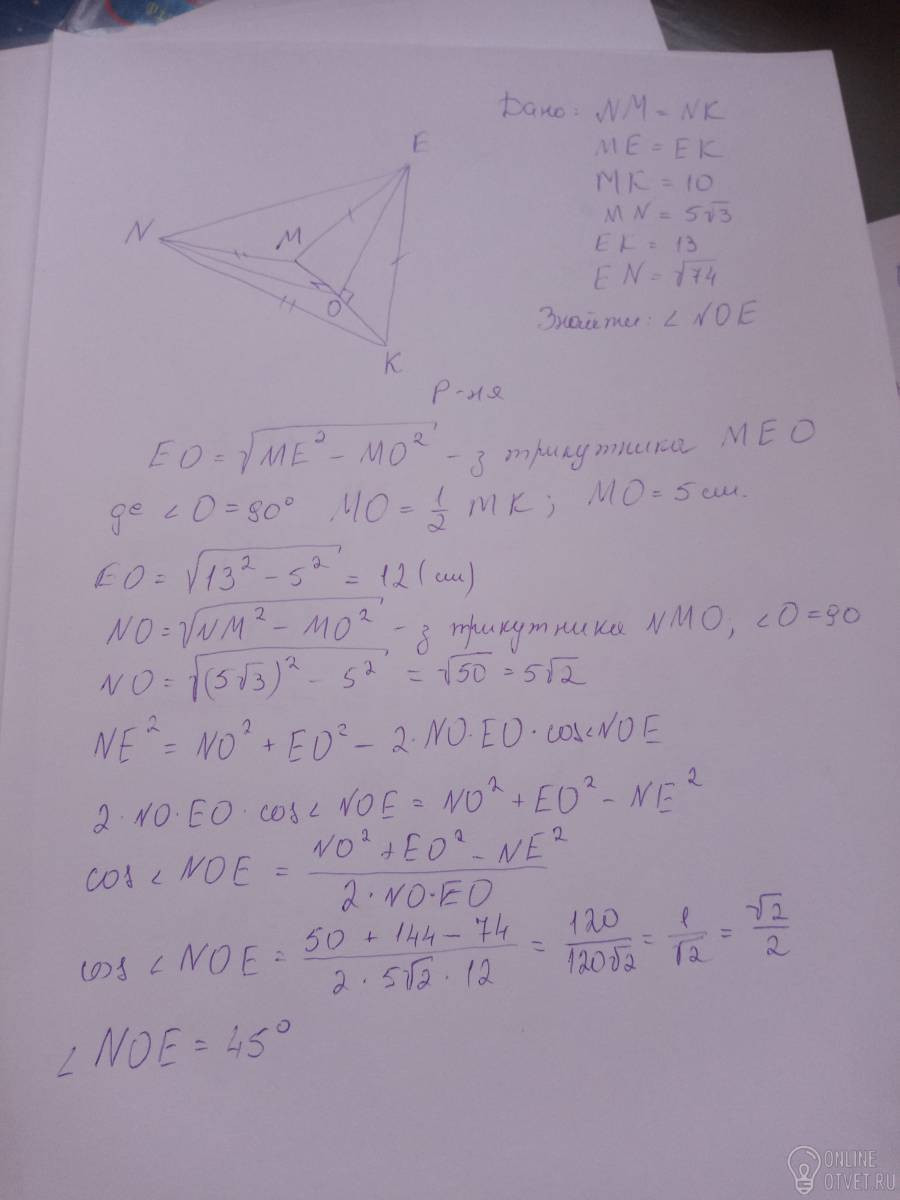 Дано: NM = NK
ME = EK
MK = 10
MN = 5√3
EK = 13
EN = √74
Знайти: ∠ NOE
E
N
M
O
K
Р-ня
EO = √ME² - MO² - з трикутника MEO
де ∠O = 90° MO = 1/2 MK; MO = 5 см.
EO = √13² - 5² = 12 (см)
NO = √NM² - MO² - з трикутника NMO, ∠O = 90
NO = √(5√3)² - 5² = √50 = 5√2
NE² = NO² + EO² - 2·NO·EO·cos∠NOE
2·NO·EO·cos∠NOE = NO² + EO² - NE²
cos∠NOE = NO² + EO² - NE² / 2·NO·EO
cos∠NOE = 50 + 144 - 74 / 2·5√2·12 = 120/120√2 = 1/√2 = √2/2
∠NOE = 45°
ONLINE
OTVET.RU